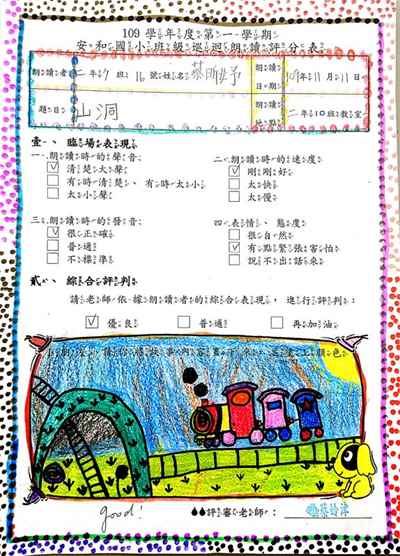 109學年度第一學期
安和國小班級巡迴朗讀評分表
朗讀者 二年9班16號姓名 蔡昕妤 朗讀日期 109年11月11日
題目 山洞 朗讀地點 二年10班教室
壹、臨場表現
一、朗讀時的聲音 二、朗讀時的速度
清楚大聲 剛剛好
有時清楚、有時太小 太快
太小聲 太慢
三、朗讀時的發音 四、表情、態度
很正確 很自然
普通 有點緊張害怕
不標準 說不出話來
貳、綜合評判
請老師依據朗讀者的綜合表現,進行評判:
優良 普通 再加油
小朋友,請你將故事內容畫下來,並畫上顏色
good! 評審老師: